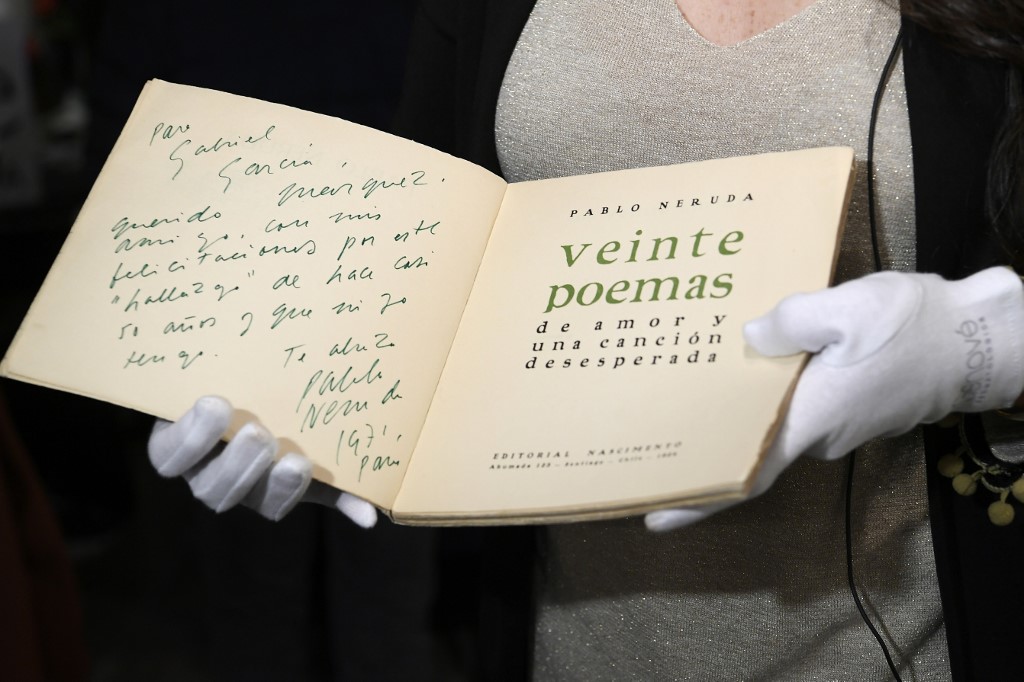 para
Gabriel
García
Marquez.
querido
amigo, con mis
felicitaciones por este
"hallazgo" de hace casi
50 años y que ni yo
tengo.
Te abraza
Pablo
Neruda
1971,
Paris
PABLO NERUDA
veinte
poemas
de amor y
una canción
desesperada
EDITORIAL NASCIMENTO
Ahumada 125 - Santiago - Chile -